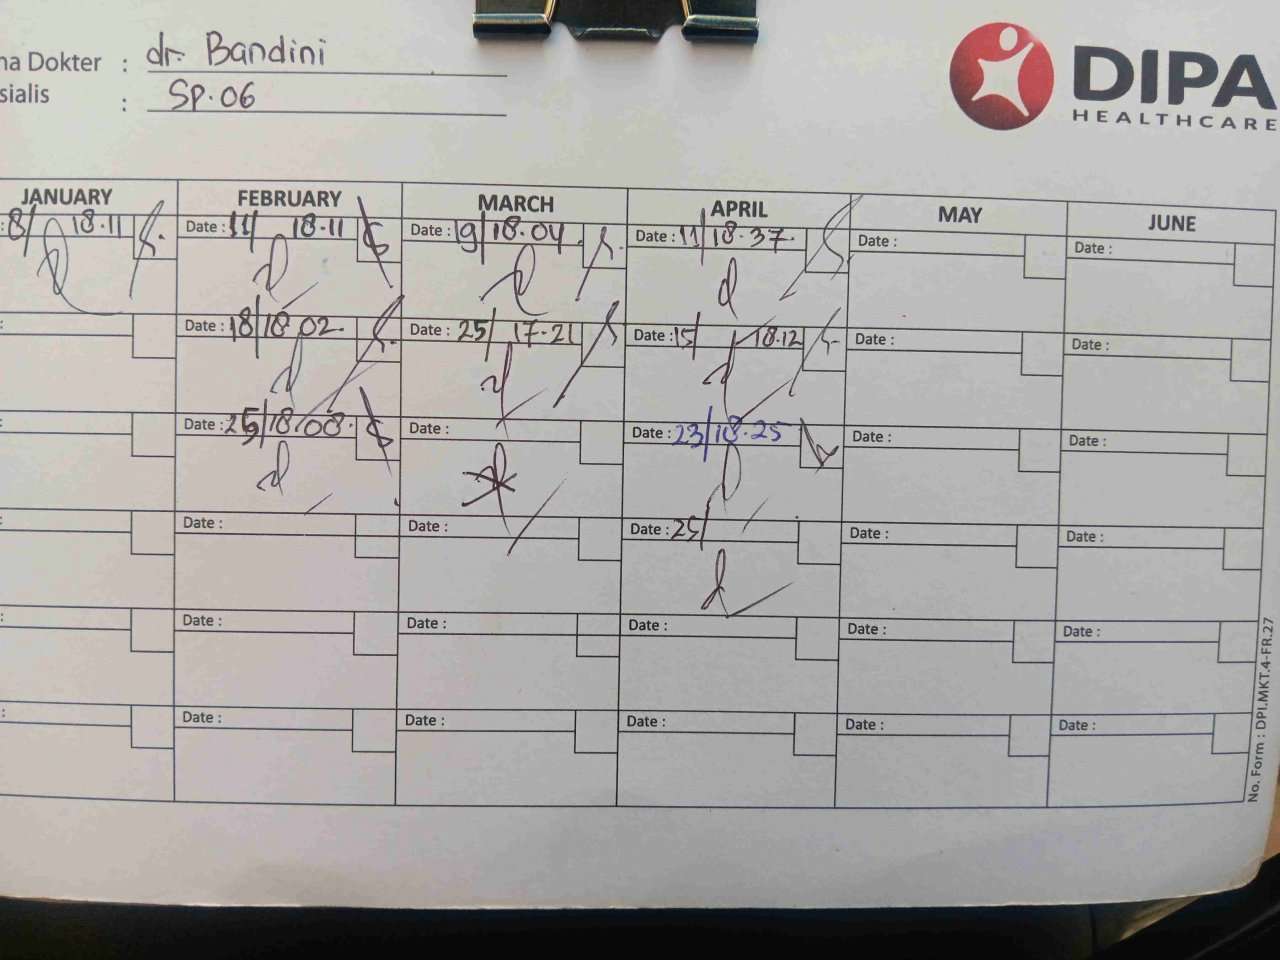 na Dokter : dr. Bandini
sialis : Sp. OG
DIPA
HEALTHCARE
JANUARY FEBRUARY MARCH APRIL MAY JUNE
: 8/ 18.11 Date : 11/ 18.11 Date : 19/18.04 Date : 11/18.37 Date : Date :
: Date : 18/18.02 Date : 25/ 17.21 Date : 15/ 18.12 Date : Date :
: Date : 25/18.08 Date : Date : 23/18.25 Date : Date :
: Date : Date : Date : 25/ Date : Date :
: Date : Date : Date : Date : Date :
: Date : Date : Date : Date : Date :
No. Form : DPI.MKT.4-FR.27